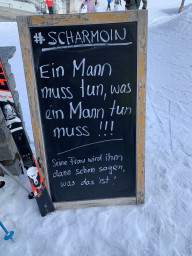 #SCHARMOIN
Ein Mann
muss tun, was
ein Mann tun
muss !!!
Seine Frau wird ihm
dann schon sagen,
was das ist